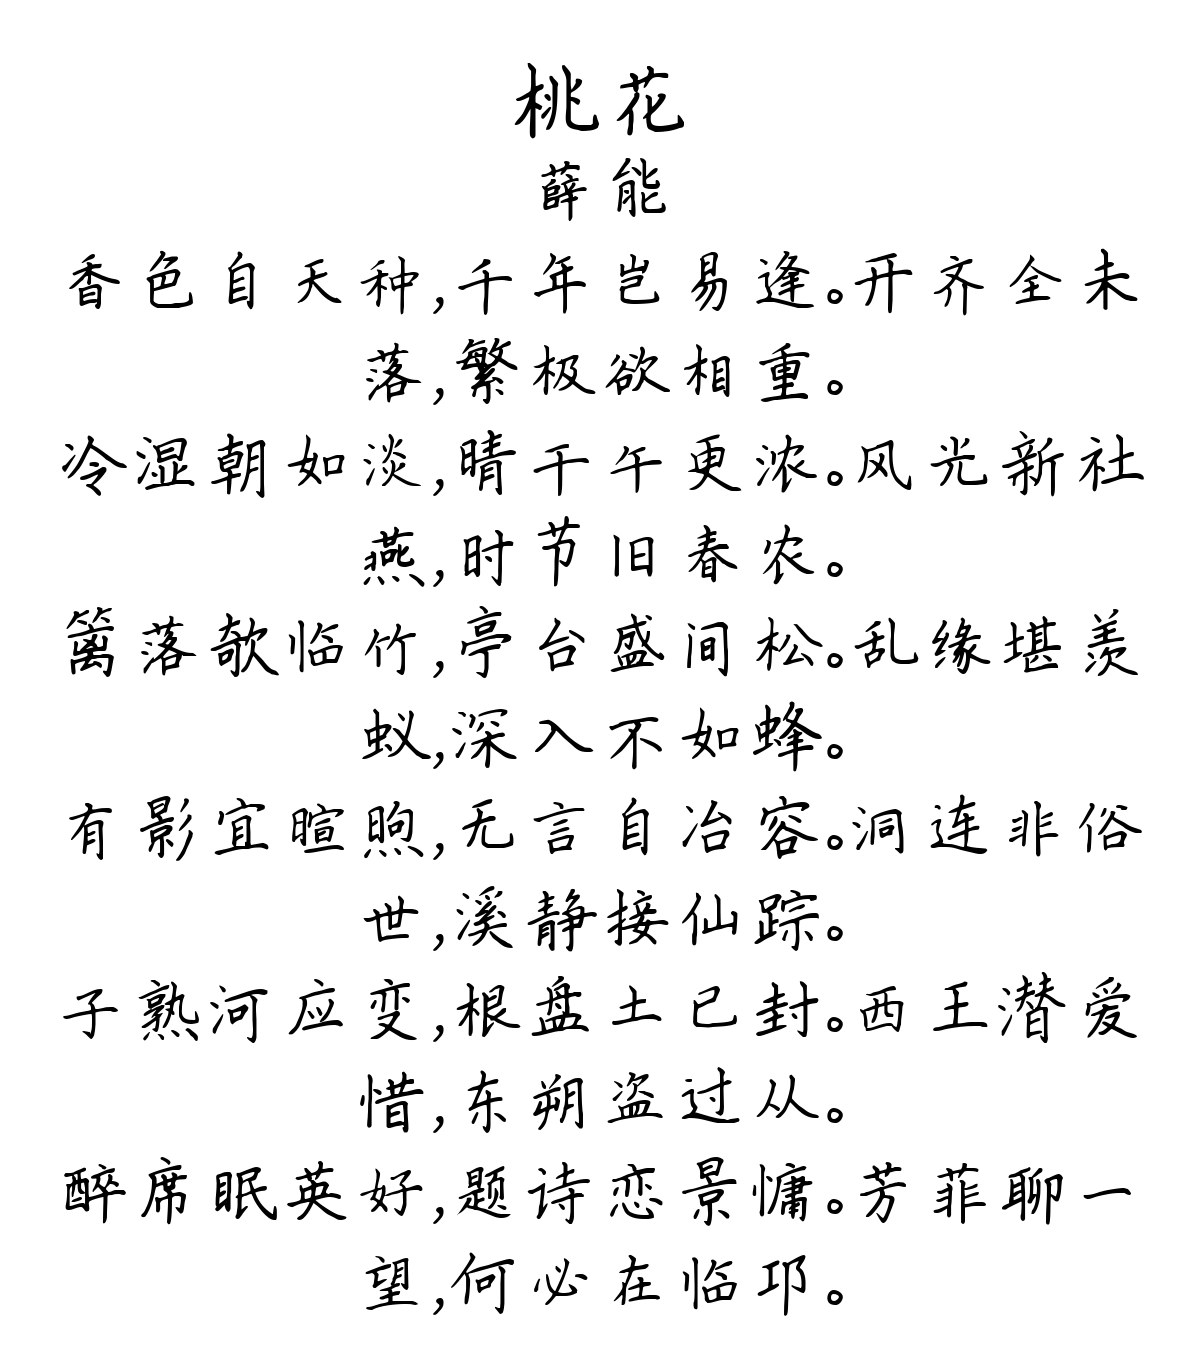 桃花
薛能
香色自天种,千年岂易逢。开齐全未
落,繁极欲相重。
冷湿朝如淡,晴干午更浓。风光新社
燕,时节旧春农。
篱落欹临竹,亭台盛间松。乱缘堪羡
蚁,深入不如蜂。
有影宜暄煦,无言自冶容。洞连非俗
世,溪静接仙踪。
子熟河应变,根盘土已封。西王潜爱
惜,东朔盗过从。
醉席眠英好,题诗恋景慵。芳菲聊一
望,何必在临邛。